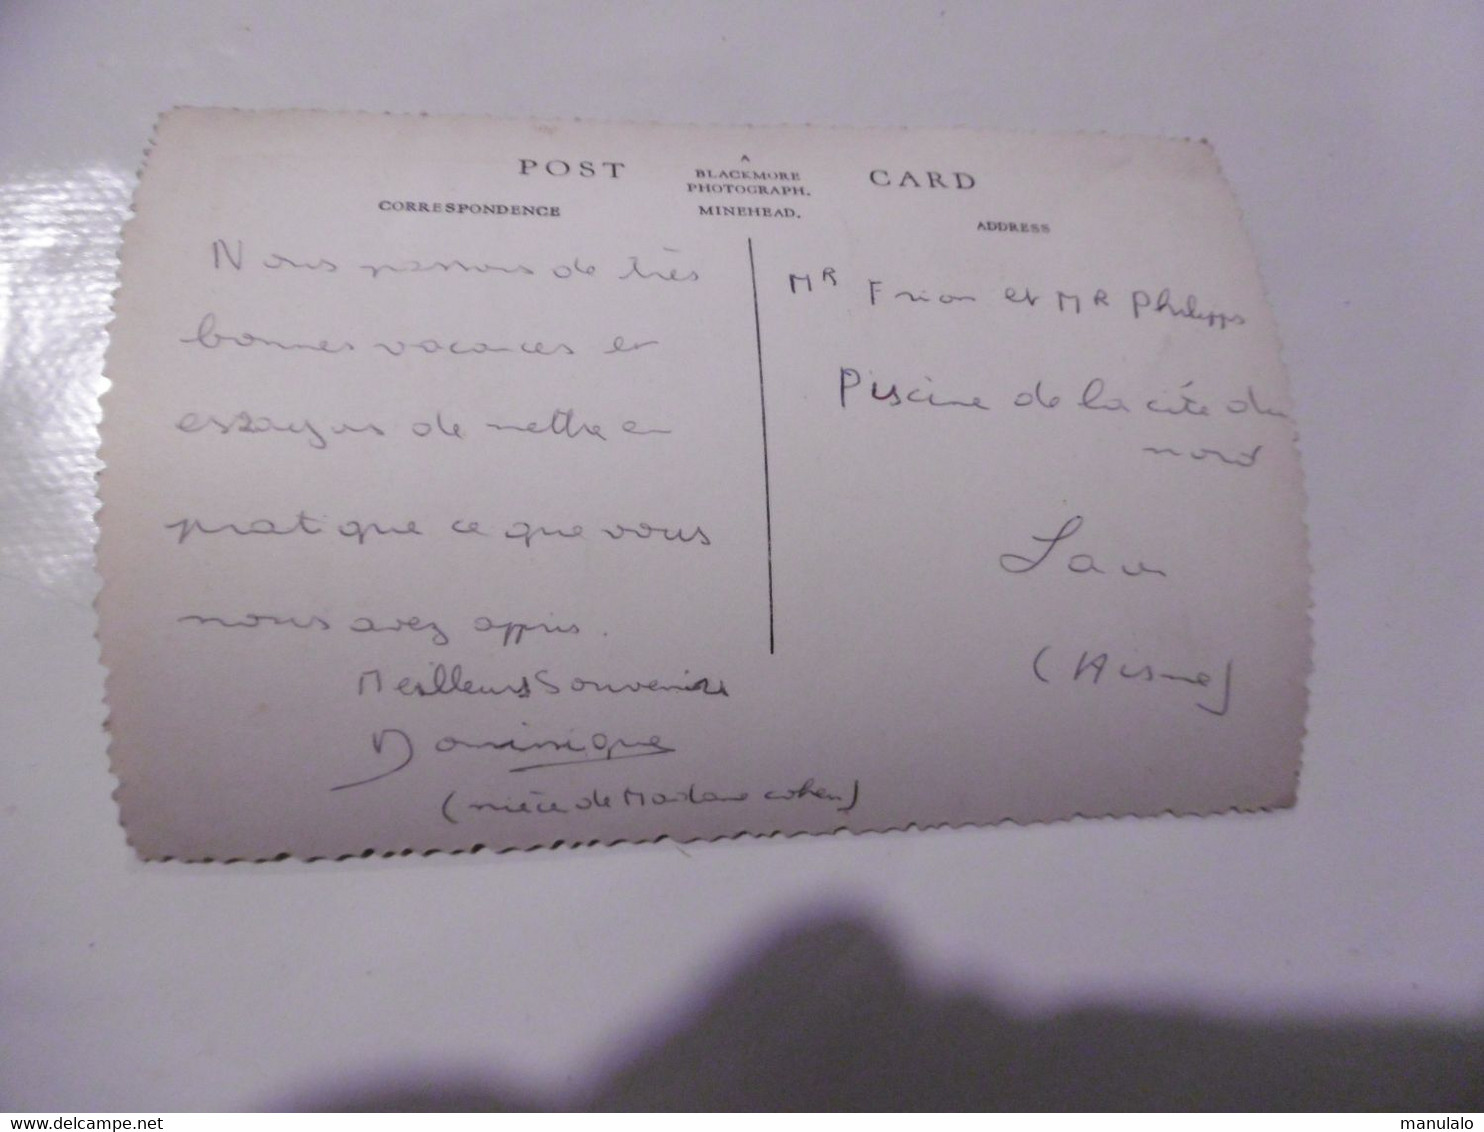 POST CARD
A
BLACKMORE
PHOTOGRAPH.
MINEHEAD.
CORRESPONDENCE
ADDRESS
Nous passons de très
bonnes vacances et
essayons de mettre en
pratique ce que vous
nous avez appris.
Meilleurs Souvenirs
Dominique
(nièce de Madame Cohen)
MR Frion et MR Philipps
Piscine de la cité du
nord
Laon
(Aisne)
delcampe.net
manulalo